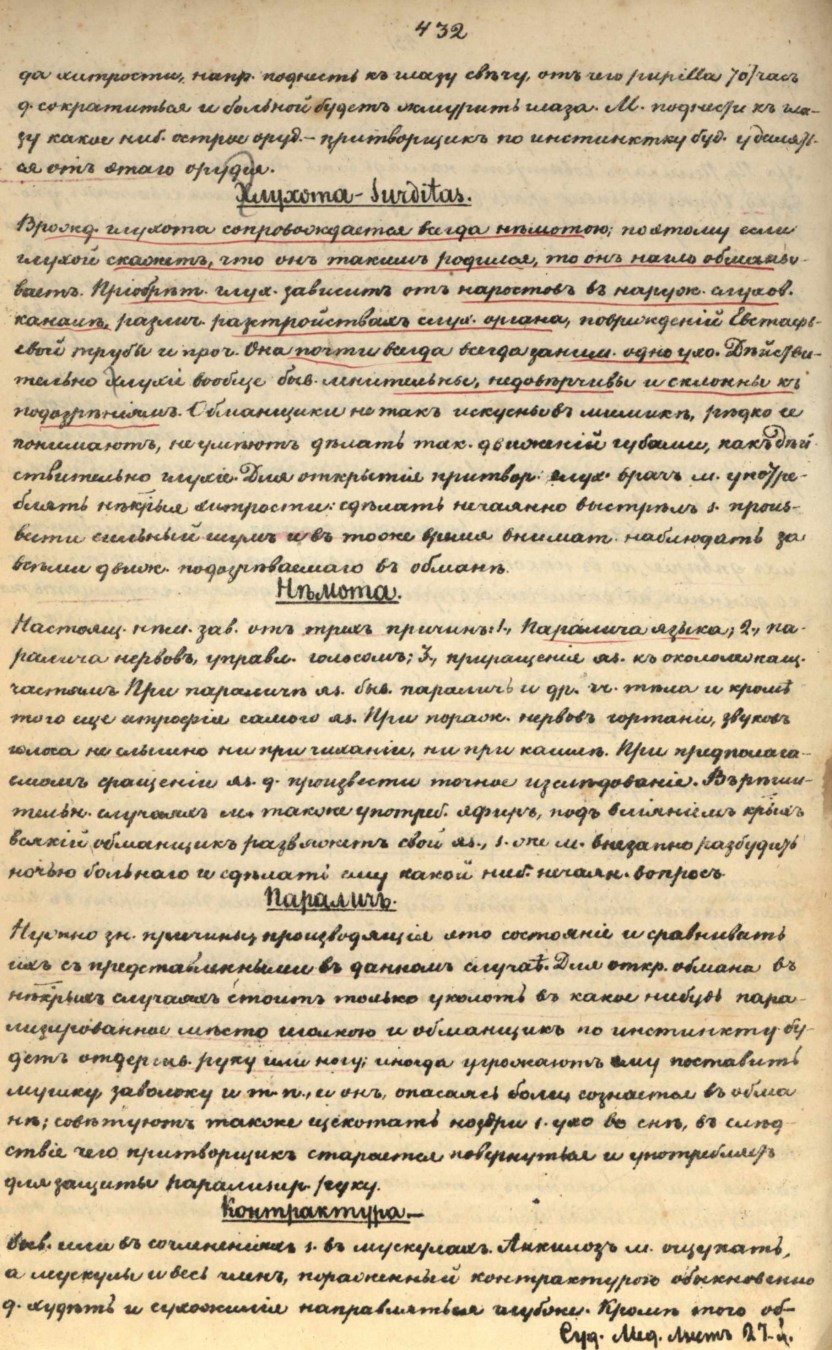 432
да хитрости, напр. поднесть къ глазу свѣчу, отъ чего pupilla тотчасъ
д. сократиться и больной будетъ жмурить глаза. М. поднести къ гла-
зу какое ниб. острое оруд.– притворщикъ по инстинктку буд. удалять-
ся отъ этаго орудія.
Глухота – Surditas.
Врожд. глухота сопровождается всегда нѣмотою; поэтому если
глухой скажетъ, что онъ такимъ родился, то онъ нагло обманы-
ваетъ. Пріобрѣт. глух. зависитъ отъ наростовъ въ наруж. слухов.
каналѣ, различ. разстройствахъ слух. органа, поврежденій Евстафі-
евой трубы и проч. Она почти всегда всегда заним. одно ухо. Дѣйстви-
тельно глухіе вообще быв. мнительны, недовѣрчивы и склонны къ
подозрѣніямъ. Обманщики не такъ искусны въ мимикѣ, рѣдко ее
понимаютъ, не умѣютъ дѣлать так. движеній губами, какъ дѣй-
ствительно глухіе. Для открытія притвор. глух. врачъ м. употре-
блять нѣкрыя хитрости: сдѣлать нечаянно выстрѣлъ s. произ-
вести сильный шумъ и въ тоже время внимат. наблюдать за
всѣми движ. подозрѣваемаго въ обманѣ.
Нѣмота.
Настоящ. нѣм. зав. отъ трехъ причинъ: 1., Паралича языка; 2., па-
ралича нервовъ, управл. голосомъ; 3., приращенія яз. къ окололежащ.
частямъ. При параличѣ яз. быв. параличъ и др. ч. тѣла и кромѣ
того еще атрофія самого яз. При пораж. нервовъ гортани, звуковъ
голоса не слышно ни при чиханіи, ни при кашлѣ. При предполага-
емомъ сращеніи яз. д. произвести точное изслѣдованіе. Въ рѣши-
тельн. случаяхъ м. также употреб. эфиръ, подъ вліяніемъ крыхъ
всякій обманщикъ развяжетъ свой яз., s. же м. внезапно разбудить
ночью больнаго и сдѣлать ему какой ниб. нечаян. вопросъ.
Параличъ.
Нужно зн. причины, производящія это состояніе и сравнивать
ихъ съ представленными въ данномъ случаѣ. Для откр. обмана въ
нѣкрыхъ случаяхъ стоитъ только уколоть въ какое нибудь пара-
лизированное мѣсто иголкою и обманщикъ по инстинкту бу-
детъ отдергив. руку или ногу; иногда угрожаютъ ему поставить
мушку, заволоку и т. п., и онъ, опасаясь боли, сознается въ обма-
нѣ; совѣтуютъ также щекотать ноздри s. ухо во снѣ, въ слѣд-
ствіе чего притворщикъ старается повернуться и употреблять
для защиты парализир. руку.
Контрактура.–
Быв. или въ сочлененіяхъ s. въ мускулахъ. Анкилозъ м. ощупать,
а мускулы и весь членъ, пораженный контрактурою обыкновенно
д. худѣть и сухожилія направляться глубже. Кромѣ того об-
Суд. Мед. Листъ 27-й.